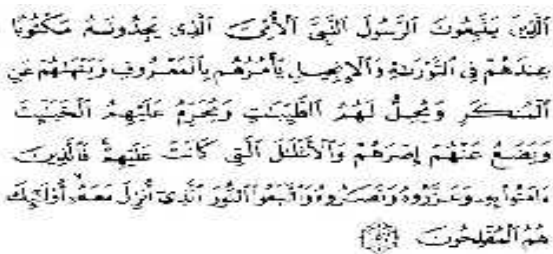 ٱلَّذِينَ يَتَّبِعُونَ ٱلرَّسُولَ ٱلنَّبِىَّ ٱلْأُمِّىَّ ٱلَّذِى يَجِدُونَهُۥ مَكْتُوبًا
عِندَهُمْ فِى ٱلتَّوْرَىٰةِ وَٱلْإِنجِيلِ يَأْمُرُهُم بِٱلْمَعْرُوفِ وَيَنْهَىٰهُمْ عَنِ
ٱلْمُنكَرِ وَيُحِلُّ لَهُمُ ٱلطَّيِّبَـٰتِ وَيُحَرِّمُ عَلَيْهِمُ ٱلْخَبَـٰٓئِثَ
وَيَضَعُ عَنْهُمْ إِصْرَهُمْ وَٱلْأَغْلَـٰلَ ٱلَّتِى كَانَتْ عَلَيْهِمْ فَٱلَّذِينَ
ءَامَنُوا۟ بِهِۦ وَعَزَّرُوهُ وَنَصَرُوهُ وَٱتَّبَعُوا۟ ٱلنُّورَ ٱلَّذِىٓ أُنزِلَ مَعَهُۥٓ أُو۟لَـٰٓئِكَ
هُمُ ٱلْمُفْلِحُونَ ١٥٧